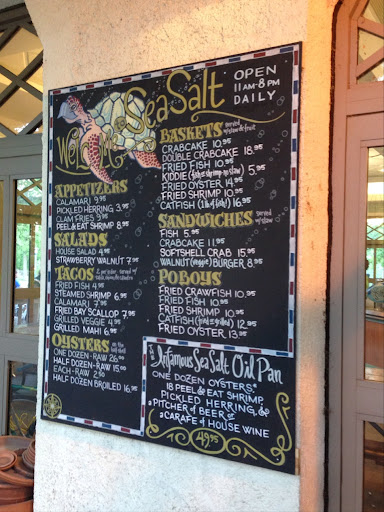 Welcome
SeaSalt
OPEN
11AM-8PM
DAILY
APPETIZERS
CALAMARI 9.95
PICKLED HERRING 3.95
CLAM FRIES 9.95
PEEL & EAT SHRIMP 8.95
SALADS
HOUSE SALAD 4.95
STRAWBERRY WALNUT 7.95
TACOS
FRIED FISH 4.95
STEAMED SHRIMP 6.95
CALAMARI 7.95
FRIED BAY SCALLOP 7.95
GRILLED VEGGIE 4.95
GRILLED MAHI 6.95
OYSTERS on the half shell
ONE DOZEN-RAW 26.00
HALF DOZEN-RAW 15.00
EACH-RAW 2.60
HALF DOZEN BROILED 16.95
BASKETS served w/slaw & fruit
CRABCAKE 10.95
DOUBLE CRABCAKE 18.95
FRIED FISH 10.95
KIDDIE (fish or shrimp-no slaw) 5.95
FRIED OYSTER 14.95
FRIED SHRIMP 10.95
CATFISH (1 lb of fish!) 16.95
SANDWICHES served w/slaw
FISH 5.95
CRABCAKE 11.95
SOFTSHELL CRAB 15.95
WALNUT (veggie) BURGER 8.95
POBOYS
FRIED CRAWFISH 10.95
FRIED FISH 10.95
FRIED SHRIMP 10.95
CATFISH (fried or grilled) 12.95
FRIED OYSTER 13.95
Infamous Sea Salt Oil Pan
ONE DOZEN OYSTERS*
18 PEEL & EAT SHRIMP
PICKLED HERRING, &
a PITCHER of BEER or
a CARAFE of HOUSE WINE
49.95